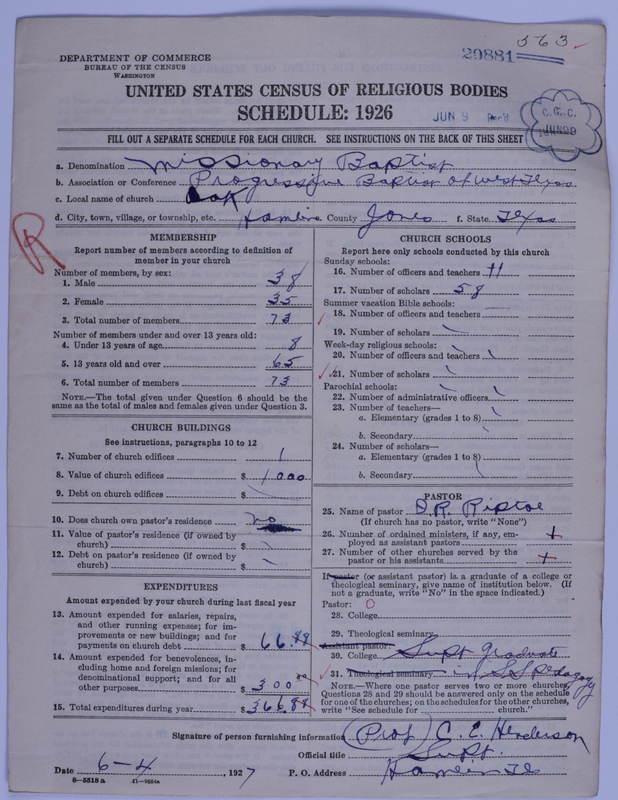 563
29881
DEPARTMENT OF COMMERCE
BUREAU OF THE CENSUS
WASHINGTON
UNITED STATES CENSUS OF RELIGIOUS BODIES
SCHEDULE: 1926
JUN 9 Rec'd
C. E. C.
JUN 29
FILL OUT A SEPARATE SCHEDULE FOR EACH CHURCH. SEE INSTRUCTIONS ON THE BACK OF THIS SHEET
a. Denomination Missionary Baptist
b. Association or Conference Progressive Baptist of West Texas
c. Local name of church Oak
d. City, town, village, or township, etc. Hamlin County Jones f. State. Texas
R
MEMBERSHIP
Report number of members according to definition of
member in your church
Number of members, by sex:
1. Male 38
2. Female 35
3. Total number of members 73
Number of members under and over 13 years old:
4. Under 13 years of age 8
5. 13 years old and over 65
6. Total number of members 73
NOTE.—The total given under Question 6 should be
same as the total of males and females given under Question 3.
CHURCH BUILDINGS
See instructions, paragraphs 10 to 12
7. Number of church edifices 1
8. Value of church edifices $ 1000
9. Debt on church edifices $
10. Does church own pastor's residence no
11. Value of pastor's residence (if owned by
church) $
12. Debt on pastor's residence (if owned by
church) $
EXPENDITURES
Amount expended by your church during last fiscal year
13. Amount expended for salaries, repairs,
and other running expenses; for im-
provements or new buildings; and for
payments on church debt $ 66.88
14. Amount expended for benevolences, in-
cluding home and foreign missions; for
denominational support; and for all
other purposes $ 300 00
15. Total expenditures during year $ 366.88
CHURCH SCHOOLS
Report here only schools conducted by this church
Sunday schools:
16. Number of officers and teachers 11
17. Number of scholars 58
Summer vacation Bible schools:
18. Number of officers and teachers
19. Number of scholars
Week-day religious schools:
20. Number of officers and teachers
21. Number of scholars
Parochial schools:
22. Number of administrative officers
23. Number of teachers—
a. Elementary (grades 1 to 8)
b. Secondary
24. Number of scholars—
a. Elementary (grades 1 to 8)
b. Secondary
PASTOR
25. Name of pastor D. R. Riptoe
(If church has no pastor, write "None")
26. Number of ordained ministers, if any, em-
ployed as assistant pastors
27. Number of other churches served by the
pastor or his assistants
If pastor (or assistant pastor) is a graduate of a college or
theological seminary, give name of institution below. (If
not a graduate, write "No" in the space indicated.)
Pastor: 0
28. College
29. Theological seminary
Assistant pastor:
30. College Supt graduate
31. Theological seminary in S S Pedagogy
NOTE.—Where one pastor serves two or more churches,
Questions 28 and 29 should be answered only on the schedule
for one of the churches; on the schedules for the other churches,
write "See schedule for church."
Signature of person furnishing information (Prof) C. E. Henderson
Official title Supt.
Date 6-4, 1927 P. O. Address Hamlin Tex
8-5518 a